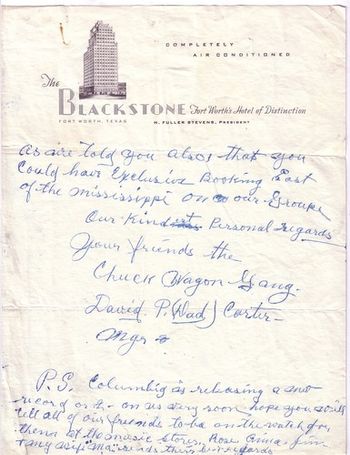 COMPLETELY
AIR CONDITIONED
The
BLACKSTONE Fort Worth's Hotel of Distinction
FORT WORTH, TEXAS H. FULLER STEVENS, PRESIDENT
as we told you also that you
could have Exclusive Booking East
of the mississippi on our Groupe
Our Kind Personal regards
Your friends the
Chuck Wagon Gang.
David P. (Dad) Carter
Mgr
P.S. Columbia is releasing a new
record on us very soon hope you will
tell all of our friends to be on the watch for
them at the music stores, Rose Anna, Jim
sends their regards